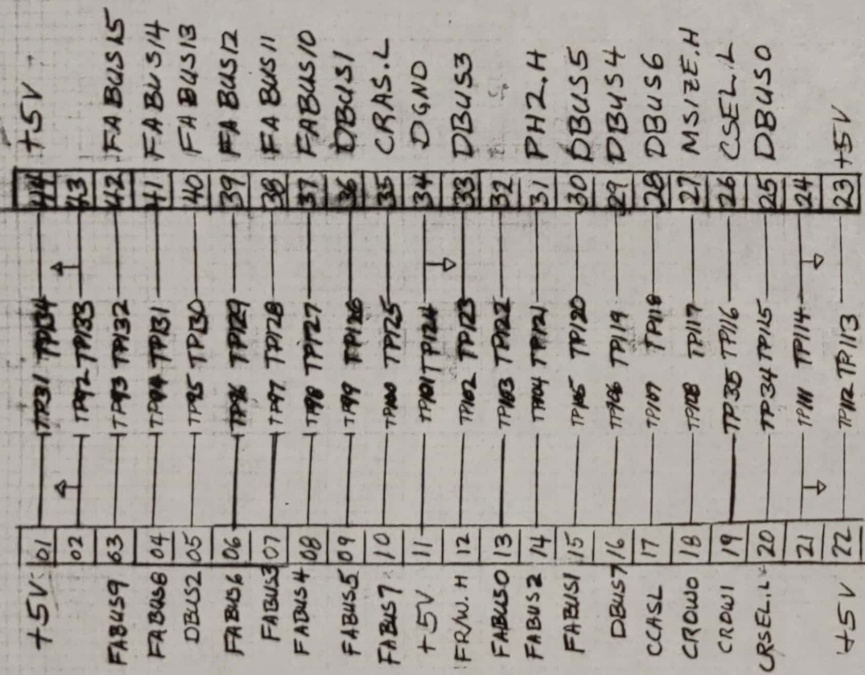 +5V 01 TP31 TP134 44 +5V
02 TP92 TP133 43
FABUS9 03 TP93 TP132 42 FABUS15
FABUS8 04 TP94 TP131 41 FABUS14
DBUS2 05 TP95 TP130 40 FABUS13
FABUS6 06 TP96 TP129 39 FABUS12
FABUS3 07 TP97 TP128 38 FABUS11
FABUS4 08 TP98 TP127 37 FABUS10
FABUS5 09 TP99 TP126 36 DBUS1
FABUS7 10 TP100 TP125 35 CRAS.L
+5V 11 TP101 TP124 34 DGND
FR/W.H 12 TP102 TP123 33 DBUS3
FABUS0 13 TP103 TP122 32
FABUS2 14 TP104 TP121 31 PH2.H
FABUS1 15 TP105 TP120 30 DBUS5
DBUS7 16 TP106 TP119 29 DBUS4
CCASL 17 TP107 TP118 28 DBUS6
CROW0 18 TP108 TP117 27 MSIZE.H
CROW1 19 TP35 TP116 26 CSEL.L
CRSEL.L 20 TP34 TP115 25 DBUS0
21 TP111 TP114 24
+5V 22 TP112 TP113 23 +5V